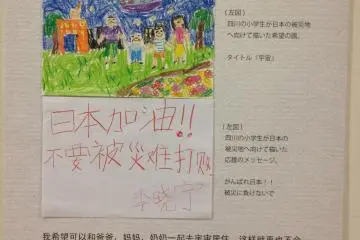 (左図)
四川の小学生が日本の被災地
へ向けて描いた希望の
タイトル「宇宙」
日本加油!!
不要被災难打败
李晓宁
(左図)
四川の小学生が日本の
被災地へ向けて描いた
応援のメッセージ。
がんばれ日本!!
被災に負けないで
我希望可以和爸爸、妈妈、奶奶一起去宇宙居住，这样就再也不会